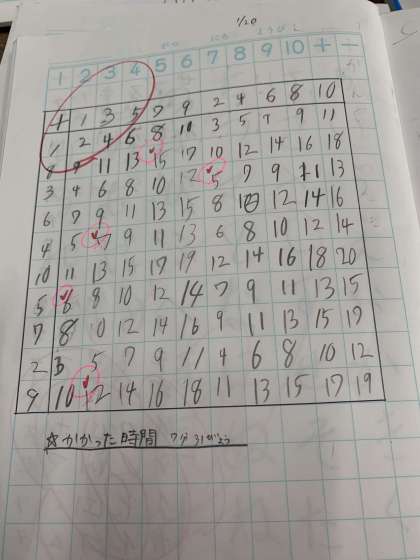 1/20
1 2 3 4 5 6 7 8 9 10 + -
+ 1 3 5 7 9 2 4 6 8 10
1 2 4 6 8 10 3 5 7 9 11
8 9 11 13 15 17 10 12 14 16 18
3 4 6 8 10 12 5 7 9 11 13
6 7 9 11 13 15 8 10 12 14 16
4 5 7 9 11 13 6 8 10 12 14
10 11 13 15 17 19 12 14 16 18 20
5 6 8 10 12 14 7 9 11 13 15
7 8 10 12 14 16 9 11 13 15 17
2 3 5 7 9 11 4 6 8 10 12
9 10 12 14 16 18 11 13 15 17 19
☆かかった時間 7分31びょう